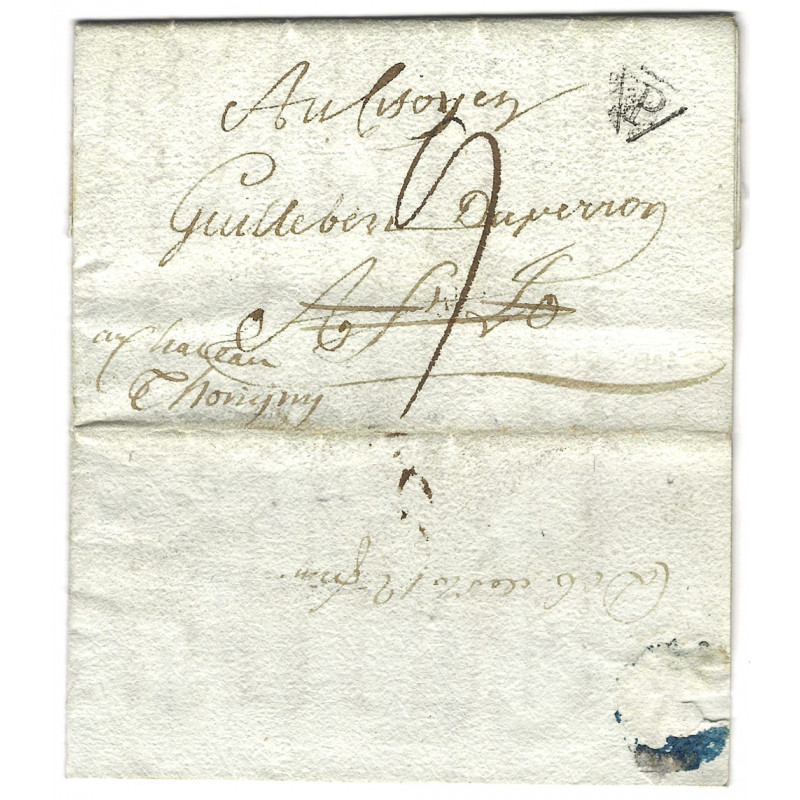 Au Citoyen
Guillebert Duperron
A St Lo
au chateau
Thorigny
9
P